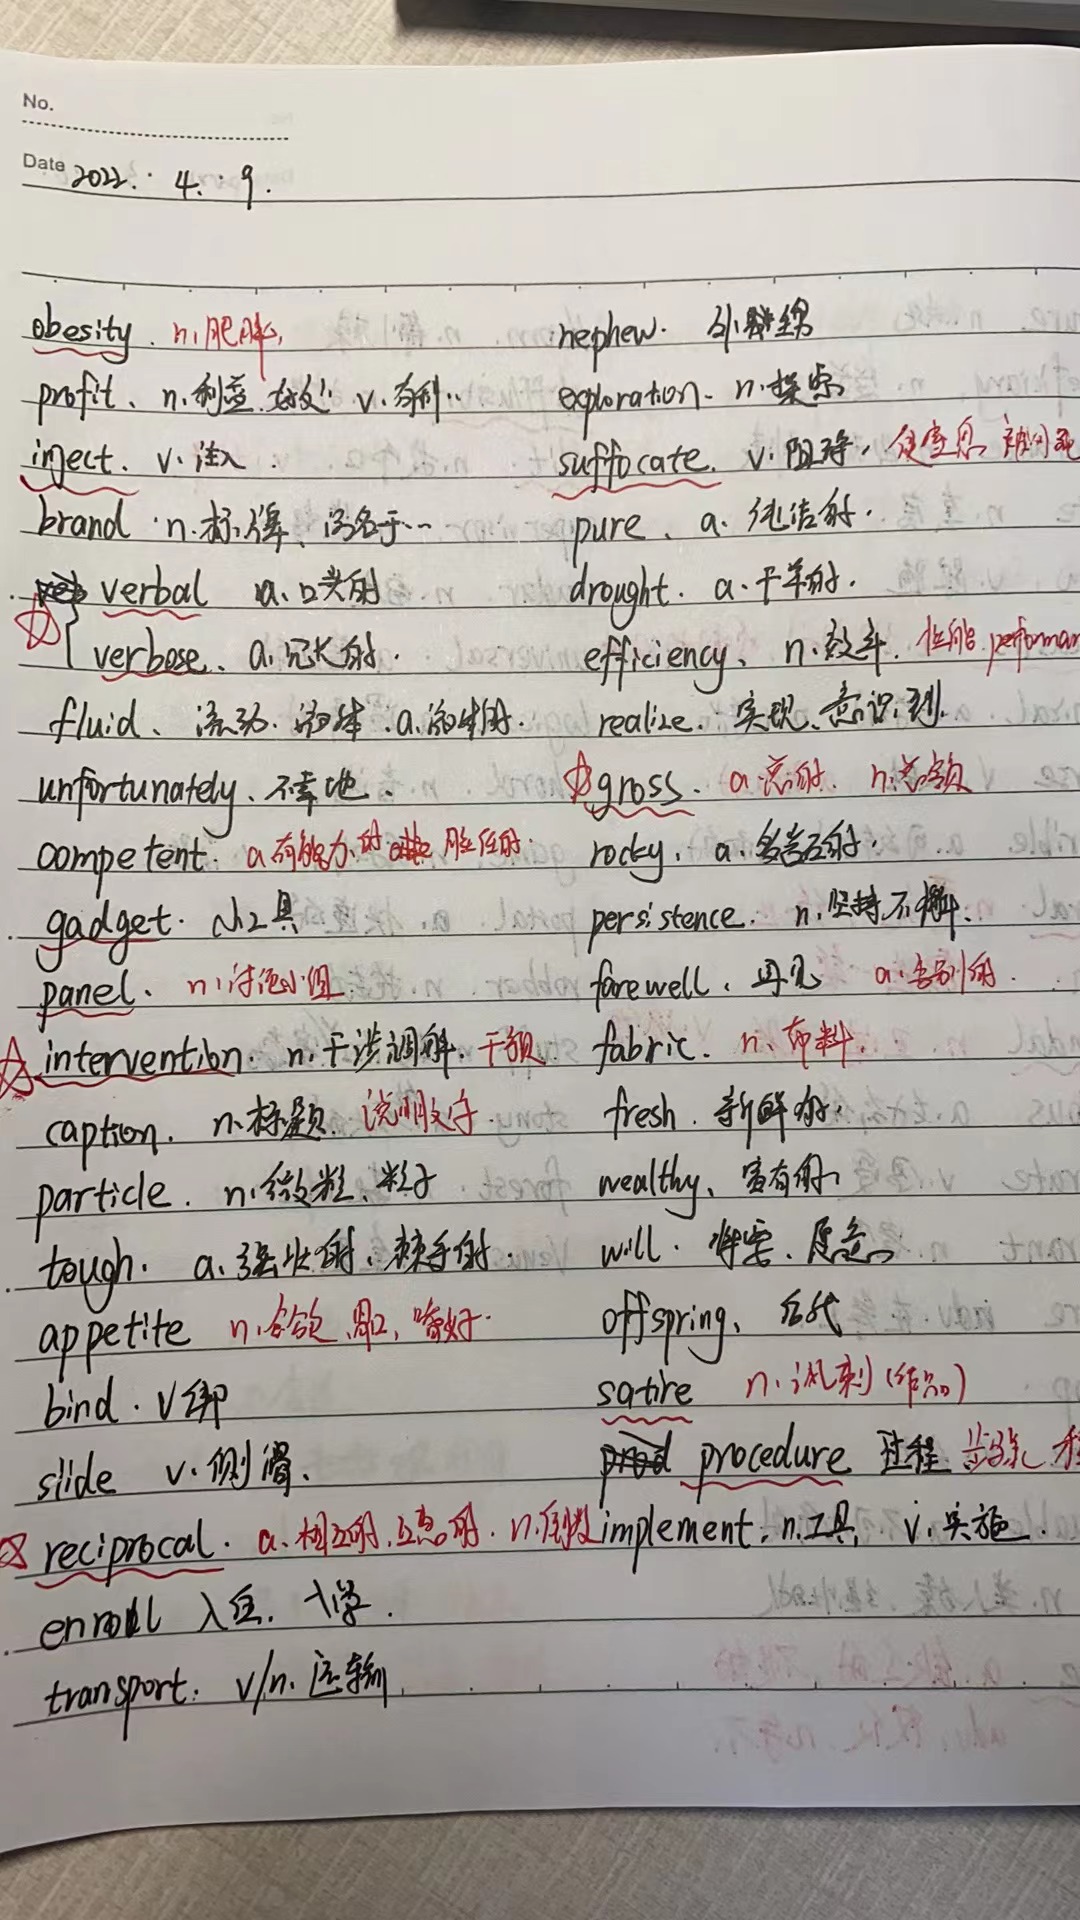 No.
Date 2022. 4. 9.
obesity. n.肥胖
profit. n.利益.好处 v.有利..
inject. v.注入.
brand n.标牌、闻名于…
verbal a.口头的
verbose. a.冗长的.
fluid. 流动.液体.a.流体的.
unfortunately. 不幸地.
competent. a.有能力的 胜任的.
gadget. 小工具
panel. n.讨论小组
intervention. n.干涉调解.干预
caption. n.标题 说明文字.
particle. n.微粒.粒子
tough. a.强壮的.棘手的.
appetite n.食欲.胃口,嗜好.
bind. v绑
slide v.侧滑.
reciprocal. a.相互的.互惠的.n.倒数
enroll 入伍.入学.
transport. v/n.运输
nephew. 外甥
exploration. n.探索
suffocate. v.阻碍. 使窒息
pure. a.纯洁的.
drought. a.干旱的.
efficiency. n.效率. 性能 performan
realize. 实现.意识到.
gross. a.总的. n.总额
rocky. a.多岩石的.
persistence. n.坚持不懈.
farewell. 再见 a.告别的.
fabric. n.布料.
fresh. 新鲜的.
wealthy. 富有的.
will. 将要.愿意
offspring. 后代
satire n.讽刺(作品)
procedure 过程 步骤
implement. n.工具 v.实施.